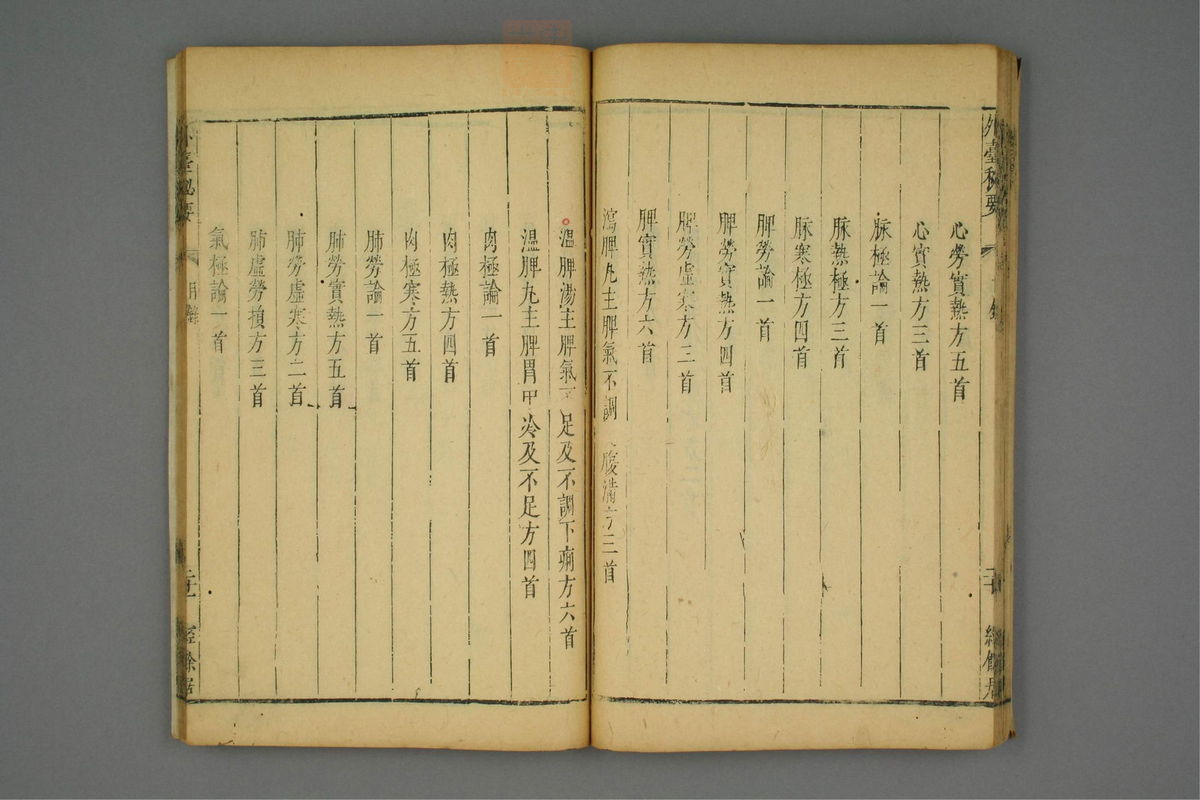 外臺秘要
心勞實熱方五首
心實熱方三首
脉極論一首
脉熱極方三首
脉寒極方四首
脾勞論一首
脾勞實熱方四首
脾勞虛寒方三首
脾實熱方六首
瀉脾丸主脾氣不調 腹滿方三首
溫脾湯主脾氣不足及不調下痢方六首
溫脾丸主脾胃中冷及不足方四首
肉極論一首
肉極熱方四首
肉極寒方五首
肺勞論一首
肺勞實熱方五首
肺勞虛寒方二首
肺虛勞損方三首
氣極論一首
外臺秘要
目錄
經餘居